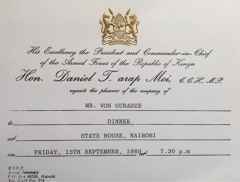 His Excellency the President and Commander-in-Chief
of the Armed Forces of the Republic of Kenya
Hon. Daniel T. arap Moi, C.G.H., M.P.
requests the pleasure of the company of
MR. VON
DINNER
STATE HOUSE, NAIROBI
FRIDAY, 15TH SEPTEMBER, 7.30 p.m